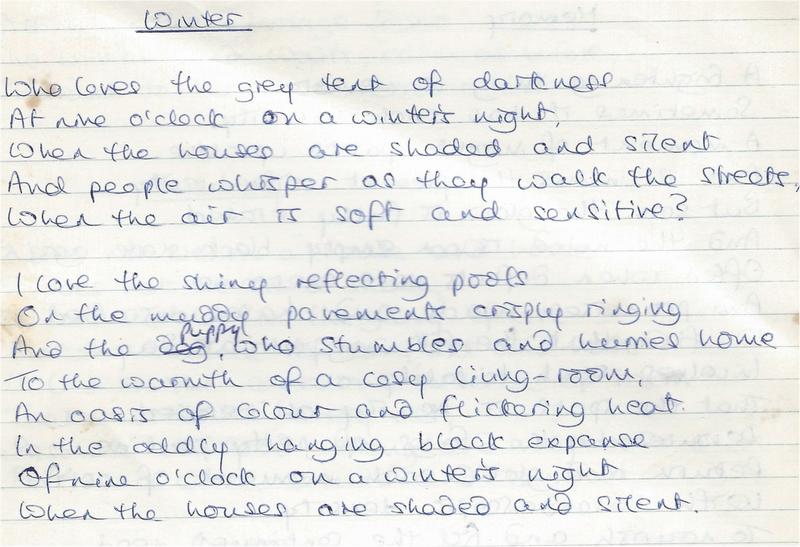 Winter
Who loves the grey tent of darkness
At nine o'clock on a winter's night,
When the houses are shaded and silent
And people whisper as they walk the streets,
When the air is soft and sensitive?
I love the shiney reflecting pools
On the muddy pavements crisply ringing
And the dog puppy, who stumbles and hurries home
To the warmth of a cosey living-room,
An oasis of colour and flickering heat.
In the oddly hanging black expanse
Of nine o'clock on a winter's night
When the houses are shaded and silent.